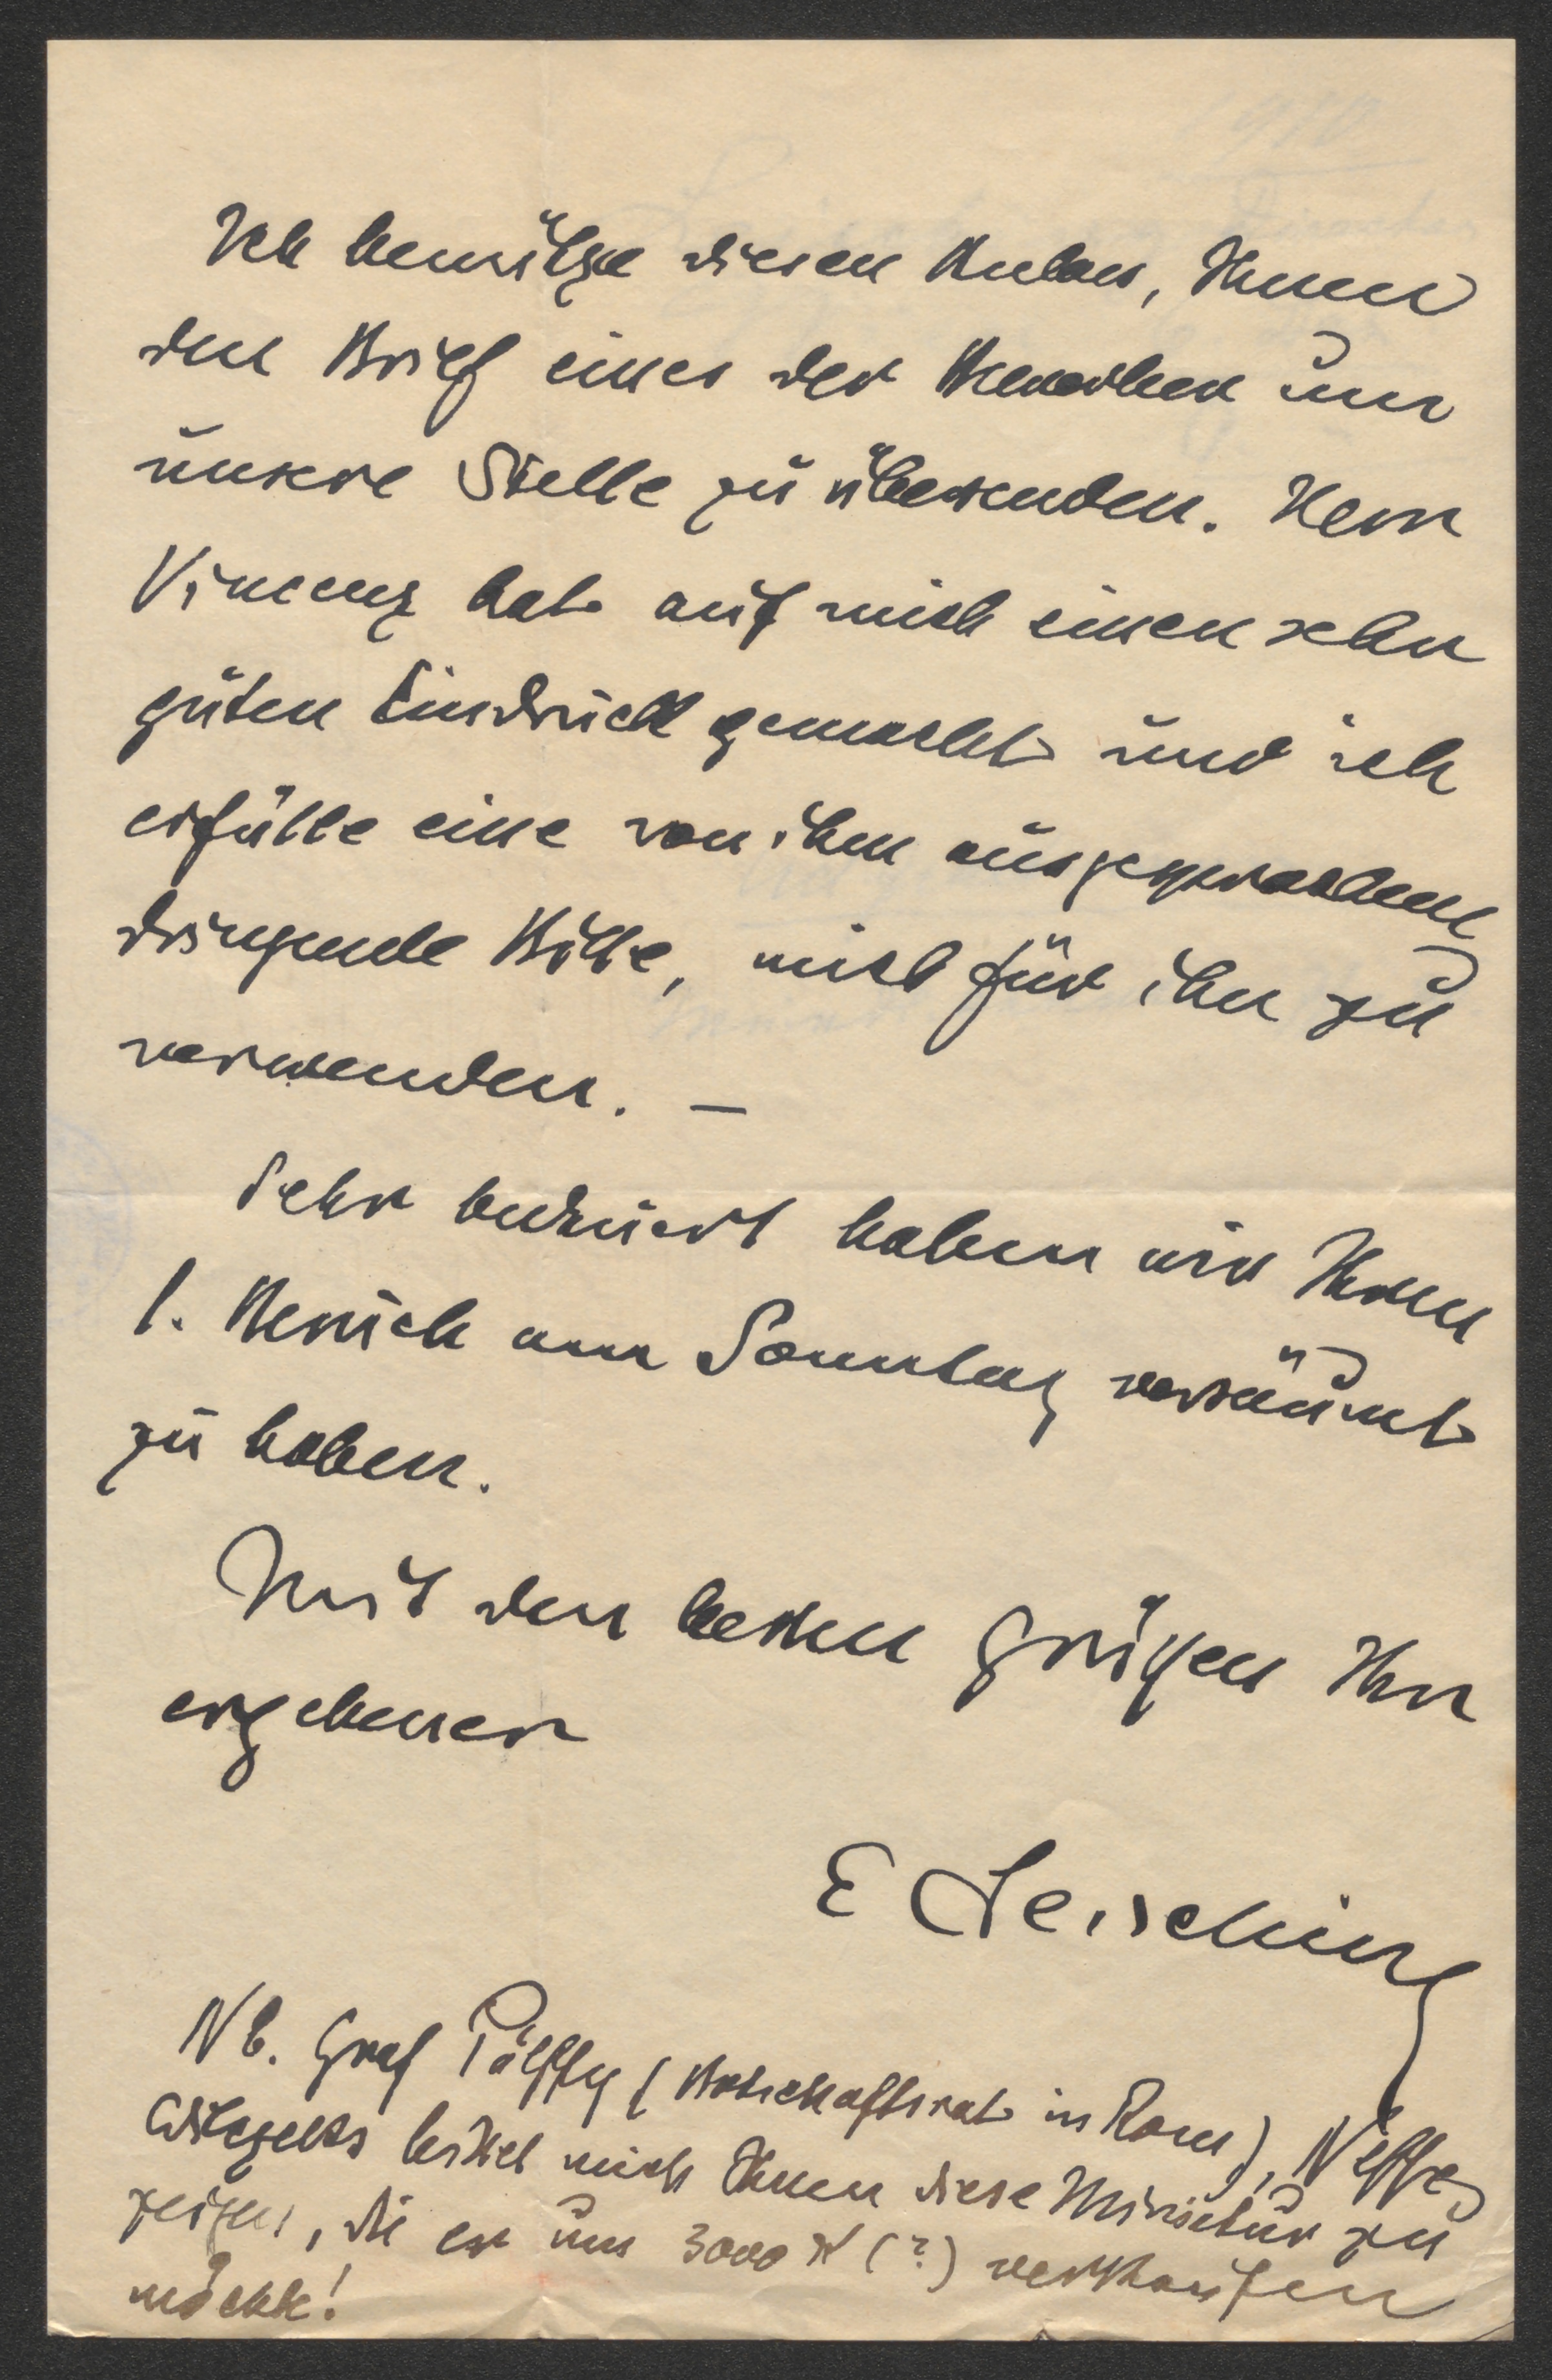 Ich benütze diesen Anlass, Ihnen
den Brief eines der Bewerber um
unsere Stelle zu übersenden. Herr
Vincenz hat auf mich einen sehr
guten Eindruck gemacht und ich
erfülle eine von ihm ausgesprochene
dringende Bitte, mich für ihn zu
verwenden. –
Sehr bedauert haben wir Ihren
l. Besuch am Sonntag versäumt
zu haben.
Mit den besten Grüßen Ihr
ergebener
E Leisching
Nb. Graf Pálffy (Botschaftsrat in Rom), Neffe
Wilczeks bittet mich Ihnen diese Miniatur zu
zeigen, die er um 3000 K (?) verkaufen
möchte!